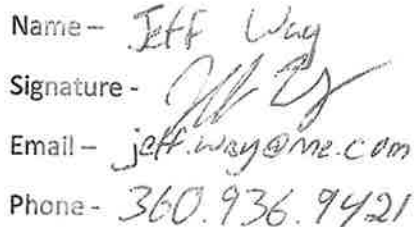 Name – Jeff Way
Signature -
Email – jeff.way@me.com
Phone - 360.936.9421